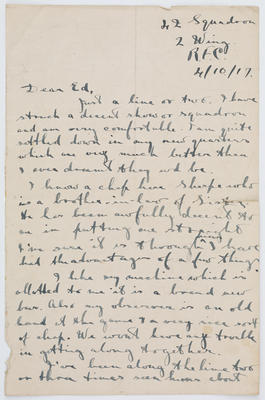 42 Squadron
2 Wing
R.F.C.
4/10/17.
Dear Ed,
Just a line or two. I have
struck a decent show or squadron
and am very comfortable. I am quite
settled down in my new quarters
which are very much better than
I ever dreamt they wd be.
I know a chap here Sharpe who
is a brother-in-law of Sister
He has been awfully decent to
me in putting me straight
I'm sure it is through him I have
had the advantages of a few things
I like my machine which is
allotted to me it is a brand new
bus. Also my observer is an old
hand at the game & a very nice sort
of chap. We wont have any trouble
in getting along together.
I've been along the line two
or three times seen hours about